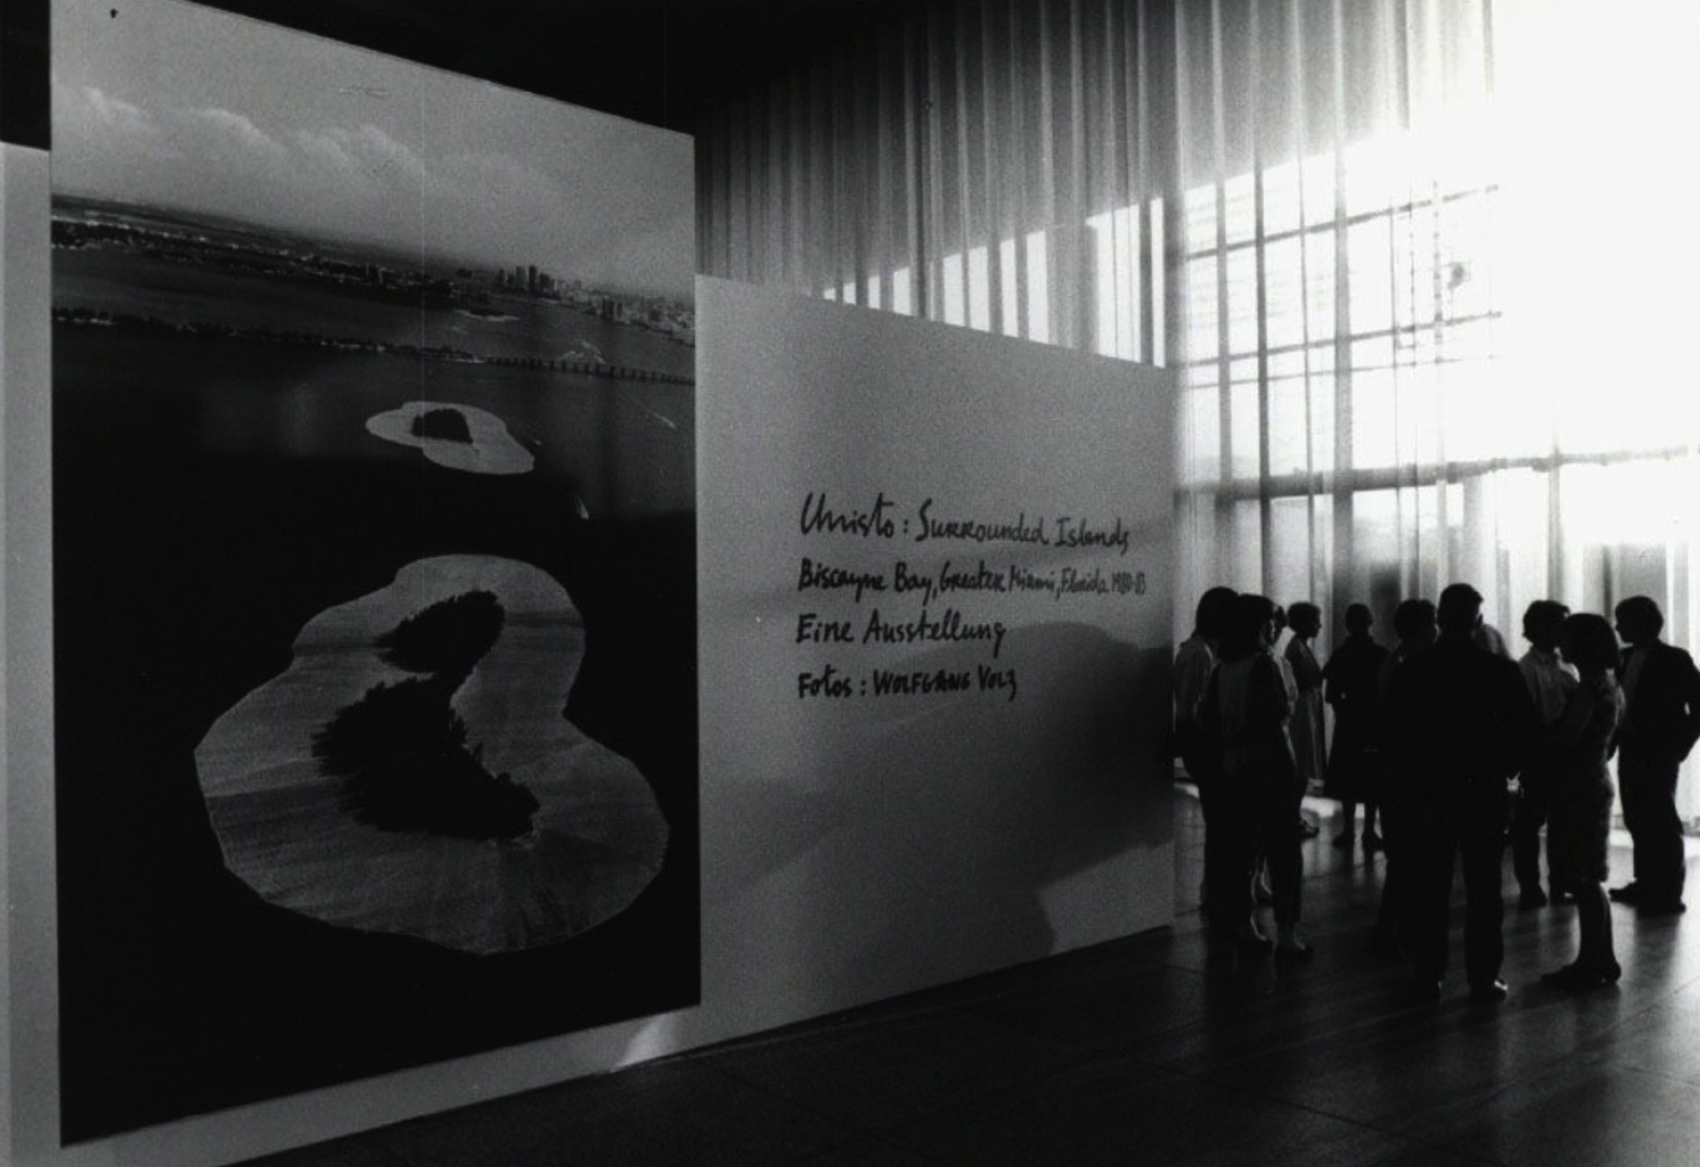 Christo: Surrounded Islands
Biscayne Bay, Greater Miami, Florida 1980-83
Eine Ausstellung
Fotos: WOLFGANG VOLZ